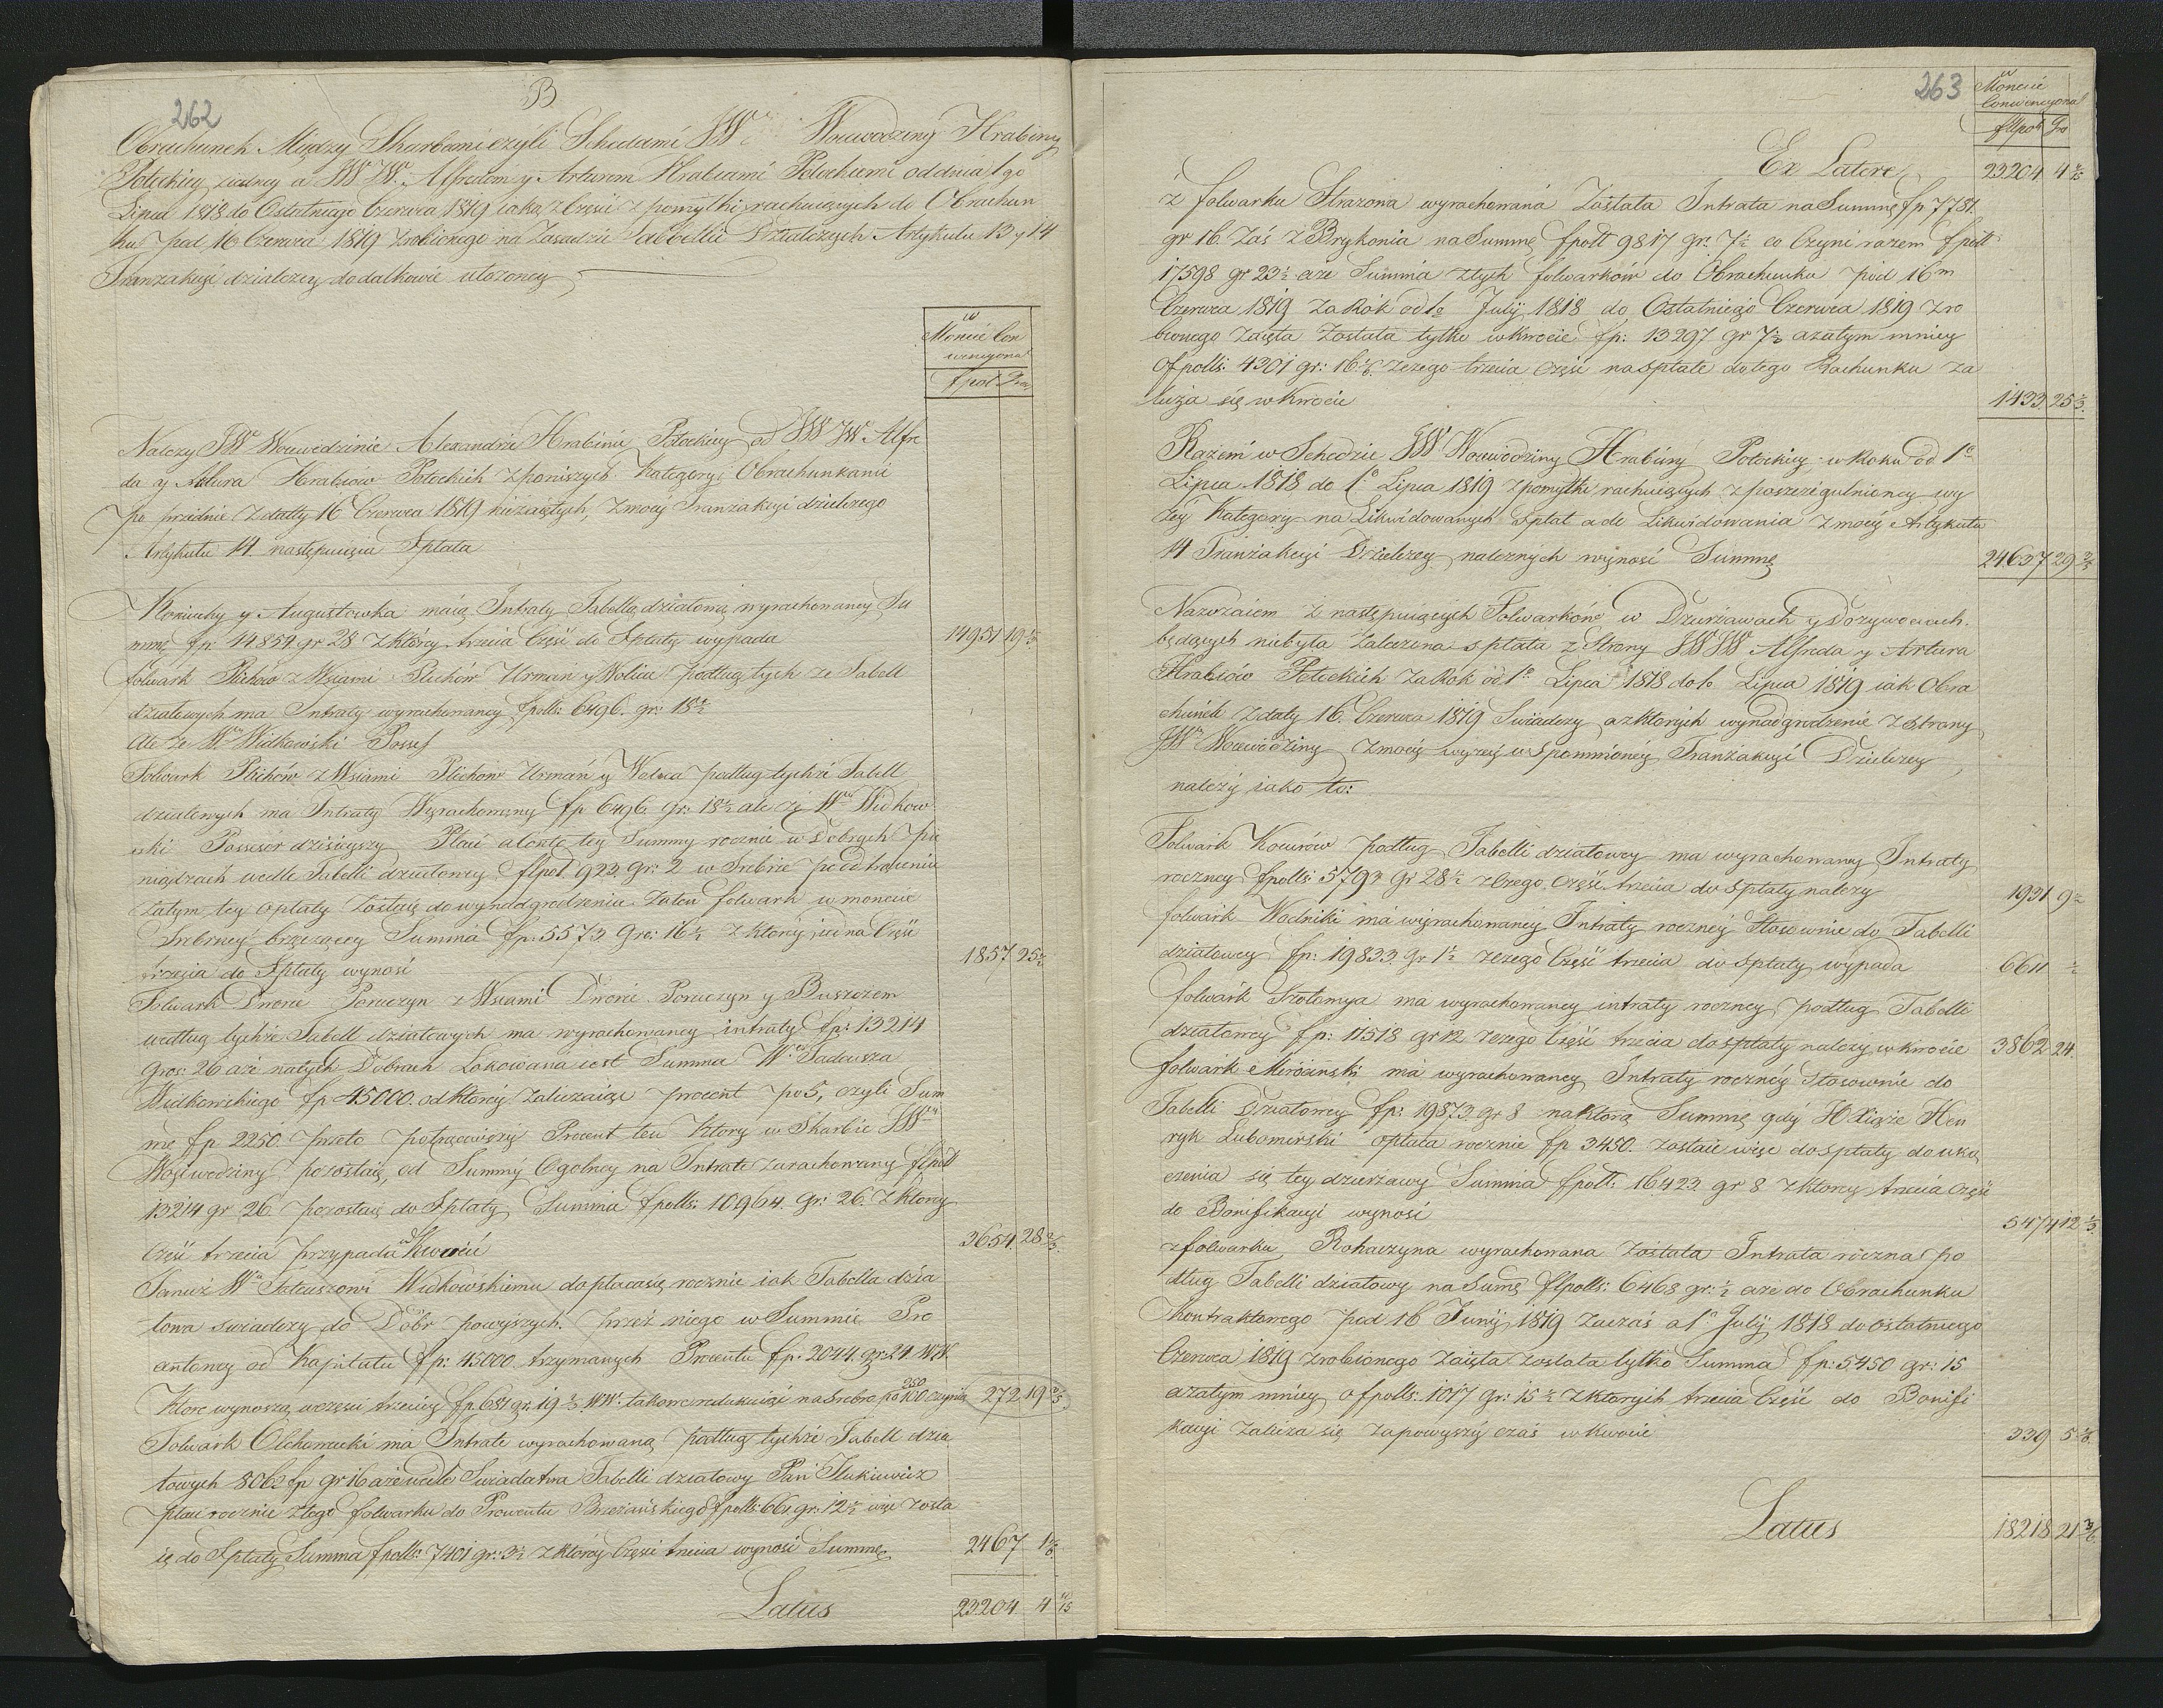 262
B
Obrachunek Między Skarbami czyli Schedami JW Woiewodziny Hrabiny
Potockiey jedney a JWJW. Alfredem y Arturem Hrabiami Potockiemi od dnia 1go
Lipca 1818 do Ostatniego Czerwca 1819 iako z Części z pomyłki rachuiących do Obrachun
ku pod 16 Czerwca 1819 zrobionego na Zasadzie Tabellie Działczych Artykułu 13 y 14
Tranzakcyi działczey dodatkowie ułożoney
w
Moncie Con
wencyona
fpol Gro
Należy JW Woiewodzinie Alexandrze Hrabinie Potockiey od JWJW Alfre
da y Artura Hrabiów Potockich z poniższych Kategoryi Obrachunkami
po przednie z datty 16 Czerwca 1819 nieżaiętych, z mocy Tranzakcyi dzielczego
Artykułu 14 następuiąca Spłata
Koniuchy y Augustowka maią Intraty Tabellą działową wyrachowaney Su
mmę fp: 44854 gr 28 z którey trzecia Część do Spłaty wypada 14951 19 1/3
folwark Plichów z Wsiami Plichów Urman y Wolica podług tych ze Tabell
działowych ma Intraty wyrachowaney fpolls: 6496. gr: 18 1/2
Ale że W Widkowski Posses
Folwark Plichów z Wsiami Plichów Urmań y Wolica podług tychże Tabell
działowych ma Intraty Wyrachowaney fp 6496. gr: 18 1/2 ale że W Widkow
ski Possesor dzisieyszy Płaci a Conto tey Summy rocznie w Dobrych pie
niądzach wedle Tabelli działowey flpol 923 gr: 2 w Srebrze po odtrąceniu
zatym tey opłaty zostaie do wynadgrodzenia za ten folwark w moncie
Srebrney brzęczącey Summa fp: 5573 Gro: 16 1/2 z ktorey jedna Część
trzecia do Spłaty wynosi 1857 25 1/2
Folwark Dworce Poruczyn z Wsiami Dworce Poruczyn y Buszczem
według tychże Tabell działowych ma wyrachowaney intraty fp: 13214
gros: 26 aże na tych Dobrach Lokowana iest Summa W. Tadeusza
Widkowskiego fp 45000. od ktorey zaliczaiąc procent po 5, czyli Sum
mę fp 2250 przeto potrąciwszy Procent ten ktory w Skarbie JW
Woiewodziny pozostaie, od Summy Ogolney na Intrate zarachowaney flpol
13214 gr 26. pozostaie do Spłaty Summa fpolls: 10964. gr: 26. z ktorey
Część trzecia przypada w Kwocie 3654. 28 2/3
Temuż W Tadeuszowi Widkowskiemu dopłaca się rocznie iak Tabella dzia
łowa swiadczy do Dóbr powyższych. przez niego w Summie Pre
antoney od Kapitału fp: 45000 trzymanych Procentu fp. 2044. gr: 29 WW
Ktore wynoszą w części trzeciey fp 681 gr: 19 2/3 WW: takowe redukuiąc na Srebro po 250/100 czynią 272 19 3/5
Folwark Olchowiecki ma Intrate wyrachowaną podług tychże Tabell dzia
łowych 8062 fp gr 16 aże wedle Swiadectwa Tabelli działowy Pan Ilukiewicz
płaci rocznie z tego folwarku do Prowentu Brzeżańskiego fpolls: 661 gr: 12 1/2 więc zosta
ie do Spłaty Summa fpolls: 7401 gr: 3 1/2 z którey Części trzecia wynosi Summę 2467 1 1/6
Latus 23204 4 11/15
263
w
Moncie
Conwencyona
fllpols Gro
Ex Latere 23204 4
z folwarku Strazona wyrachowana została Intrata na Summę fp 7781.
gr 16. zaś z Brykonia na Summę fpoll 9817 gr: 7 1/2 co Czyni razem fpoll
17598 gr 23 1/2 aże Summa z tych folwarków do Obrachunku pod 16m
Czerwca 1819 za Rok od 1o July 1818 do Ostatniego Czerwca 1819 zro
bionego zaięta została tylko w kwocie fp: 13297 gr 7 azatym mniey
o fpolls: 4301 gr: 16 z czego trzecia część na spłate do tego Rachunku za
licza się w Kwocie 1433 25
Razem w Schedzie JW Woiewodziny Hrabiny Potockiey w Roku od 1o
Lipca 1818 do 1o Lipca 1819 z pomyłki rachuiących z poszczegulnioney wy
żey Kategoryi na Likwidowanych Spłat a do Likwidowania z mocy Artykułu
14 Tranzakcyi Dzielczey należnych wynosi Summę 24637 29
Nawzaiem z następuiących Folwarków w Dzierżawach y Dozywociach
będących niebyła zaliczona spłata z Strony JWJW Alfreda y Artura
Hrabiów Potockich za Rok od 1o Lipca 1818 do 1o Lipca 1819 iak Obra
chunek z daty 16. Czerwca 1819 Swiadczy a z ktorych wynadgrodzenie z Strony
JW Woiewodziny z mocy wyzey wspomnioney Tranzakcyi Dzielczey
należy iako to:
Folwark Kowrów podług Tabelli działowey ma wyrachowaney Intraty
roczney fpolls: 5793 gr 28 1/2 z Czego Część trzecia do Spłaty należy 1931 9
folwark Wodniki ma wyrachowaney Intraty roczney Stosownie do Tabelli
działowey fp: 19833 gr 1 1/2 z czego Część trzecia do Spłaty wypada 6611
folwark Szołomya ma wyrachowaney intraty roczney podług Tabelli
działowey fp: 11518 gr 12 z czego Część trzecia do spłaty należy w kwocie 3862 24.
folwark Mirocinski ma wyrachowaney Intraty roczney stosownie do
Tabelli Działowey fp: 19873 gr 8 na ktorą Summę gdy JO Xiąże Hen
ryk Lubomirski opłaca rocznie fp 3450. zostaie więc do spłaty do ukoń
czenia się tey dzierżawy Summa fpoll: 16423 gr 8 z ktorey trzecia część
do Bonifikacyi wynosi 5474 12
z folwarku Rohaczyna wyrachowana została Intrata roczna po
dług Tabelli działowy na Sumę flpolls: 6468 gr: 1/2 aże do Obrachunku
Kontraktowego pod 16 Junij 1819 za czas a 1o July 1818 do ostatniego
Czerwca 1819 zrobionego zaięta została tylko Summa fp: 5450 gr: 15
azatym mniey o fpolls: 1017 gr: 15 1/2 z ktorych trzecia Część do Bonifi
kacyi zalicza się za powyższy czas w kwocie 339 5
Latus 18218 21